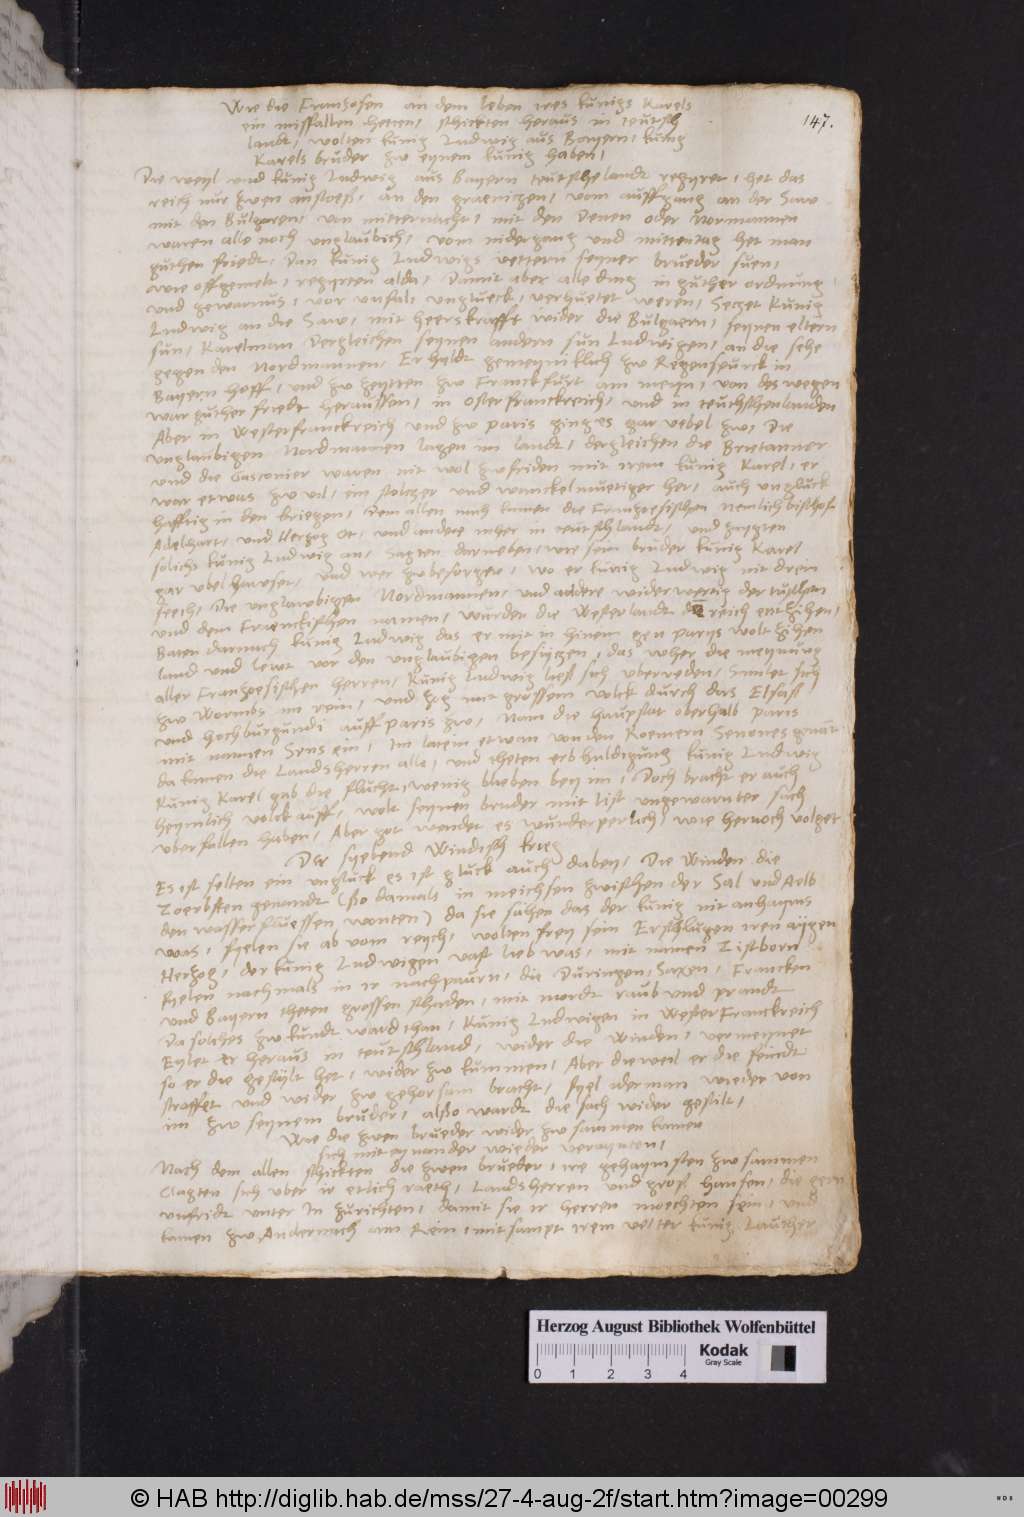 147.
Wie die Franzosen an dem leben ires künigs Karels
ein missfallen hetten, schickten heraus in teutsch
landt, wolten künig Ludwig aus Bayern, künig
Karels bruder zw eynem künig haben,
Die weyl und künig Ludwig aus Bayern teutschelandt regyret, het das
reich nur zwen anstoess, an den graenitzen, vom auffgang an der Saw
mit den Bulgaren, von mitternacht, mit den Denen oder Normannen
waren alle noch unglaubich, vom nidergang und mittentag het man
guthen friedt, Dan künig Ludwigs vettern seyner brueder suen,
wie offgemelt, regyrten alda, Damit aber alle ding in guther ordnung
und gewarnus, vor unfal, unglueck, verhuetet weren, Seczet Kunig
Ludwig an die Saw, mit heerskrafft wider die Bulgaern, seynen eltern
sun, Karelman Dergleichen seynen andern sun Ludwigen, an die sehe
gegen den Nordmannen, Er hyldt gemeyniklich zw Regenspurck in
Bayern hoff, und zw zeytten zw Franckfurt am meyn, von des wegen
war guther friedt heraussen, in osterfranckreich, und in teuchschenlanden
Aber in Westerfranckreich und zw paris ging es gar uebel zw, Die
unglaubigen Nordmannen lagen im landt, dergleichen die Brietanner
und die Gasconier waren nit wol zwfriden mit irem künig Karel, er
war etwas zw vil, ein stolczer und wanckelmuetiger her, auch unglück
hafftig in den kriegen, Dem allen nach kamen die Franzoesischen nemlich bischof
Adelhart, und Herzog Ot, und andere mher in teutschlandt, und zaygten
solichs künig Ludwig an, sagten darneben, wie sein bruder künig Karel
gar ubel hawset, und wer zwbesorgen, wo er künig Ludwig nit drein
seech, Die unglawbigen Nordmannen, und andere widerwertig der tuschen
und dem Franckischen namen, wurden die Westerlandt dem reich entzihen,
Baten darnach künig Ludwig das er mit in hinein gen parys wolt zihen
land und lewt vor den unglaubigen beschyczen, das wher die meynung
aller Franzoesischen herren, Künig Ludwig liess sich uberreden, Samlet sich
zw Wormbs im rein, und zog mit grossem volck durch das Elsass
und hochburgundi auff Paris zw, Nam die haupstat oberhalb paris
mit namen Sens ein, Im latein etwan von den Roemern Senones genant
da kamen die Landsherren alle, und theten erbhuldigung künig Ludwig
Künig Karel gab die flucht, wenig blieben bey im, Doch bracht er auch
heymlich volck auff, wolt seynen bruder mit list ungewarnter sach
uberfallen haben, Aber got wendet es wunderperlich, wie hernoch volget
Der syebend Windisch krieg
Es ist selten ein unglück es ist glück auch daben, Die Winden die
Zoerbsten genandt (so damals in meichsen zwischen der Sal und Aelb
den wasser fluessen wonten) da sie sahen das der künig nit anhayms
was, fyelen sie ab vom reych, wolten frey sein Erschlugen iren aygen
Herzog, der künig Ludwigen vast lieb was, mit namen Zistborn
fyelen nachmals in ir nachpaurn, die Duringen, Saxen, Francken
und Bayern theten grossen schaden, mit mordt raub und prandt
Da solches zw kundt ward than, Künig Ludwigen in Wester Franckreich
Eylet er heraus in teutschland, wider die Winden, vermeynet
so er die gestylt het, wider zw kummen, Aber dieweil er die feindt
straffet und wider zw gehorsam bracht, fyel iderman wieder von
im zw seynem bruder, also wardt die sach wider gestilt,
Wie die zwen brueder wider zw samen kamen
sich mit eynander wieder veraynten,
Nach dem allen schickten die zwen brueder, ire gehaymsten zw sammen
Clagten sich uber ir etlich raeth, Landsherren und gross hansen, die gern
unfridt unter In zurichten, damit sie ir herren moechten sein, und
kamen zw Andernach am Rein, mit sampt irem vetter künig Lauther
Herzog August Bibliothek Wolfenbüttel
0 1 2 3 4
Kodak
Gray Scale
© HAB http://diglib.hab.de/mss/27-4-aug-2f/start.htm?image=00299